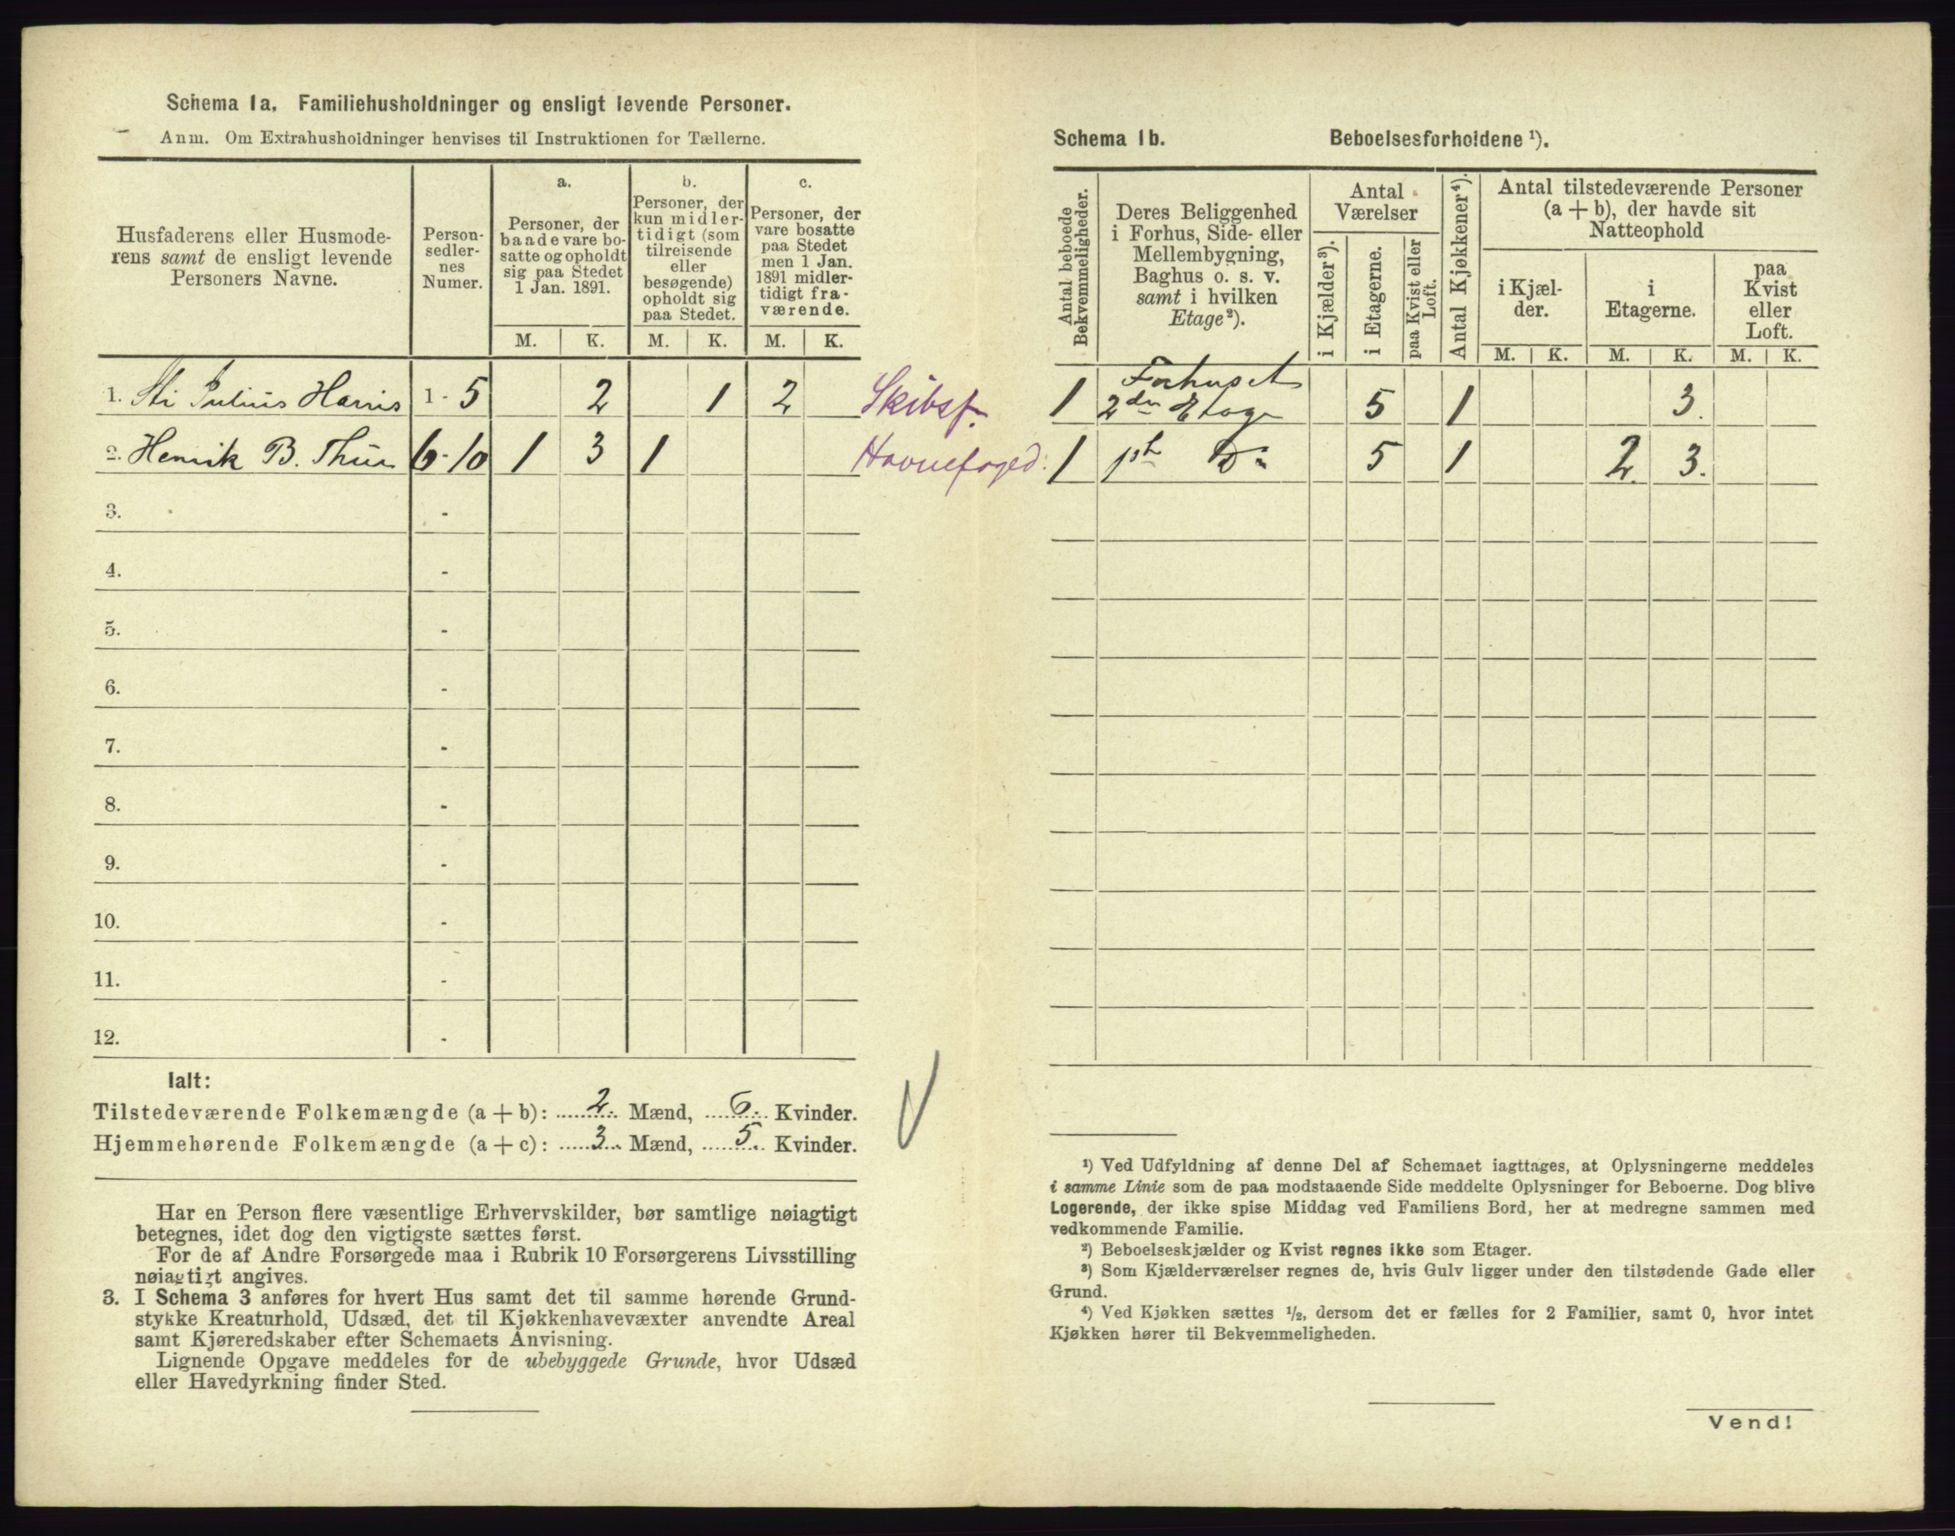 Schema 1a. Familiehusholdninger og ensligt levende Personer.
Anm. Om Extrahusholdninger henvises til Instruktionen for Tællerne.
Husfaderens eller Husmode-
rens samt de ensligt levende
Personers Navne.
Person-
sedler-
nes
Numer.
a.
Personer, der
baade vare bo-
satte og opholdt
sig paa Stedet
1 Jan. 1891.
b.
Personer, der
kun midler-
tidigt (som
tilreisende
eller
besøgende)
opholdt sig
paa Stedet.
c.
Personer, der
vare bosatte
paa Stedet
men 1 Jan.
1891 midler-
tidigt fra-
værende.
M. K. M. K. M. K.
1. Julius 1 - 5 2 1 2 Skibsf.
2. Henrik B. 6 - 10 1 3 1 Havnefoged.
3. -
4. -
5. -
6. -
7. -
8. -
9. -
10. -
11. -
12. -
Ialt:
Tilstedeværende Folkemængde (a + b): 2. Mænd, 6. Kvinder.
Hjemmehørende Folkemængde (a + c): 3. Mænd, 5. Kvinder.
Har en Person flere væsentlige Erhvervskilder, bør samtlige nøiagtigt
betegnes, idet dog den vigtigste sættes først.
For de af Andre Forsørgede maa i Rubrik 10 Forsørgerens Livsstilling
nøiagtigt angives.
3. I Schema 3 anføres for hvert Hus samt det til samme hørende Grund-
stykke Kreaturhold, Udsæd, det til Kjøkkenhavevæxter anvendte Areal
samt Kjøreredskaber efter Schemaets Anvisning.
Lignende Opgave meddeles for de ubebyggede Grunde, hvor Udsæd
eller Havedyrkning finder Sted.
Schema 1b. Beboelsesforholdene ¹).
Antal beboede
Bekvemmeligheder.
Deres Beliggenhed
i Forhus, Side- eller
Mellembygning,
Baghus o. s. v.
samt i hvilken
Etage²).
Antal
Værelser
i Kjælder³).
i Etagerne.
paa Kvist eller
Loft.
Antal Kjøkkener⁴).
Antal tilstedeværende Personer
(a + b), der havde sit
Natteophold
i Kjæl-
der.
i
Etagerne.
paa
Kvist
eller
Loft.
M. K. M. K. M. K.
1 Forhuset
2den Etage 5 1 3.
1 1ste Do 5 1 2. 3.
¹) Ved Udfyldning af denne Del af Schemaet iagttages, at Oplysningerne meddeles
i samme Linie som de paa modstaaende Side meddelte Oplysninger for Beboerne. Dog blive
Logerende, der ikke spise Middag ved Familiens Bord, her at medregne sammen med
vedkommende Familie.
²) Beboelseskjælder og Kvist regnes ikke som Etager.
³) Som Kjælderværelser regnes de, hvis Gulv ligger under den tilstødende Gade eller
Grund.
⁴) Ved Kjøkken sættes ½, dersom det er fælles for 2 Familier, samt 0, hvor intet
Kjøkken hører til Bekvemmeligheden.
Vend!